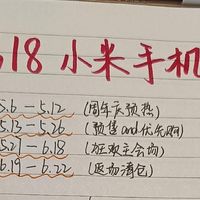 .18 小米手机
5.6 — 5.12 (周年庆预热)
5.13 — 5.26 (预售and优先购)
5.27 — 6.18 (狂欢主会场)
6.19 — 6.22 (返场清仓)